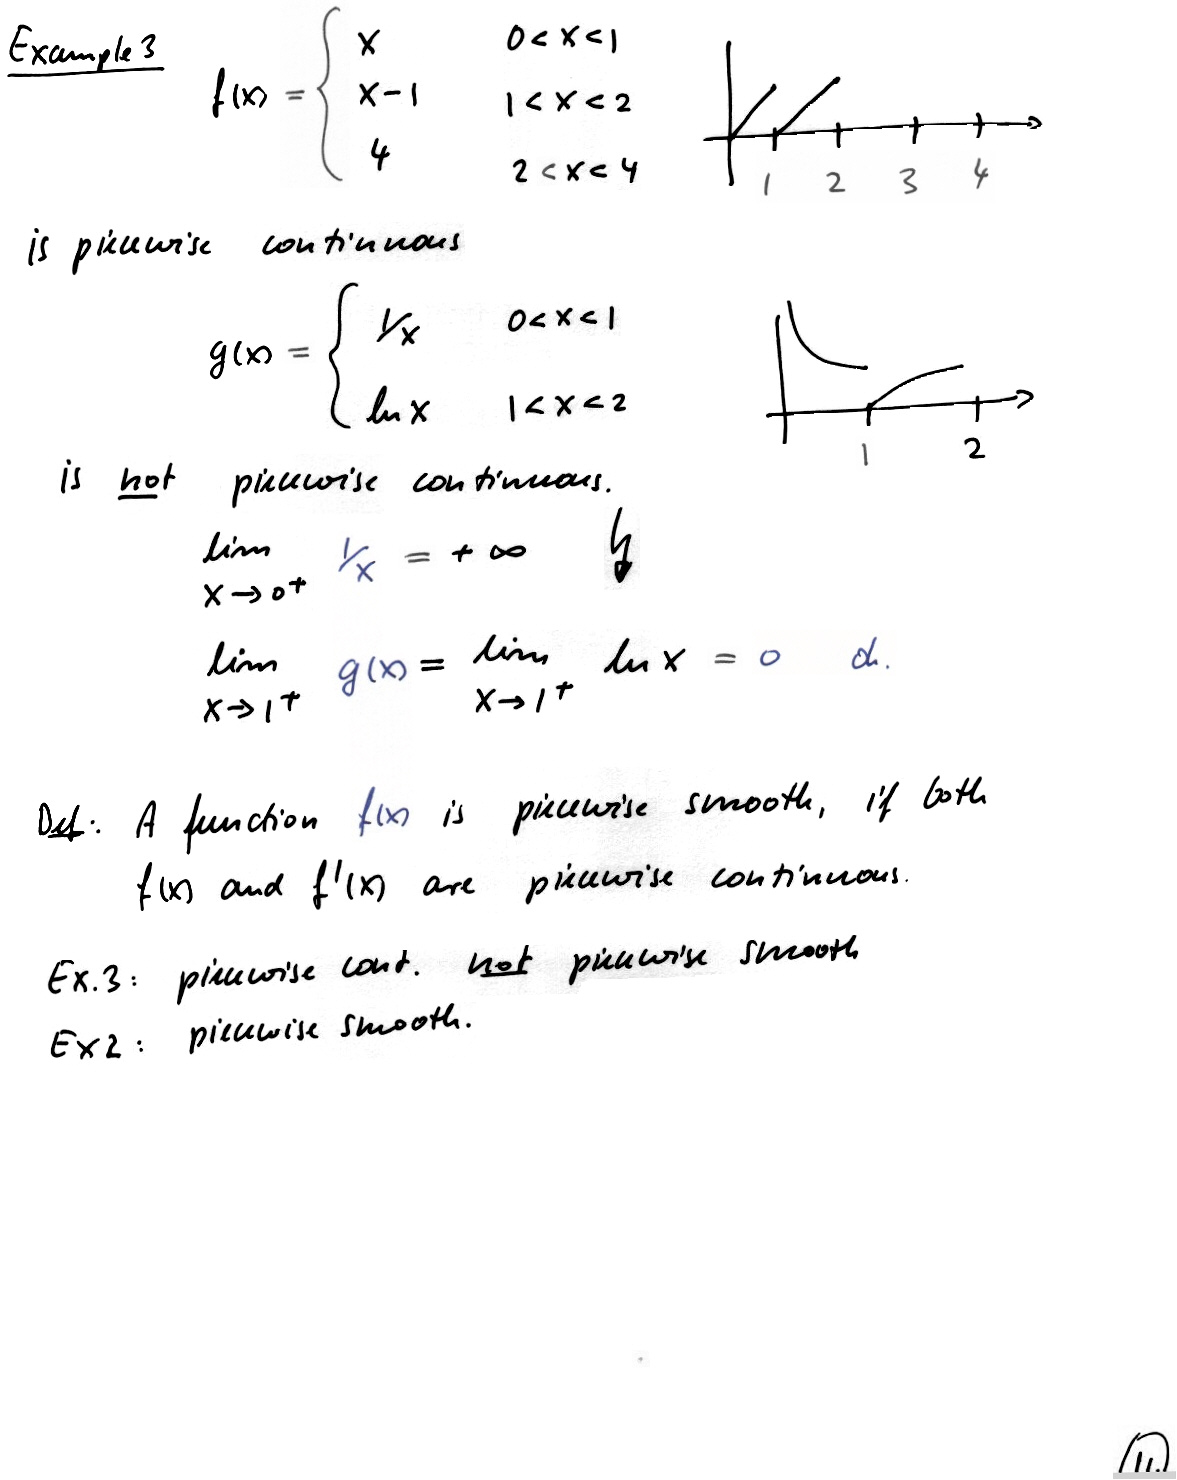 Example 3
f(x) = { x 0 < x < 1
x - 1 1 < x < 2
4 2 < x < 4
1 2 3 4
is piecewise continuous
g(x) = { 1/x 0 < x < 1
ln x 1 < x < 2
1 2
is not piecewise continuous.
lim x→0+ 1/x = + ∞
lim x→1+ g(x) = lim x→1+ ln x = 0
Def: A function f(x) is piecewise smooth, if both
f(x) and f'(x) are piecewise continuous.
Ex.3: piecewise cont. not piecewise smooth
Ex2: piecewise smooth.